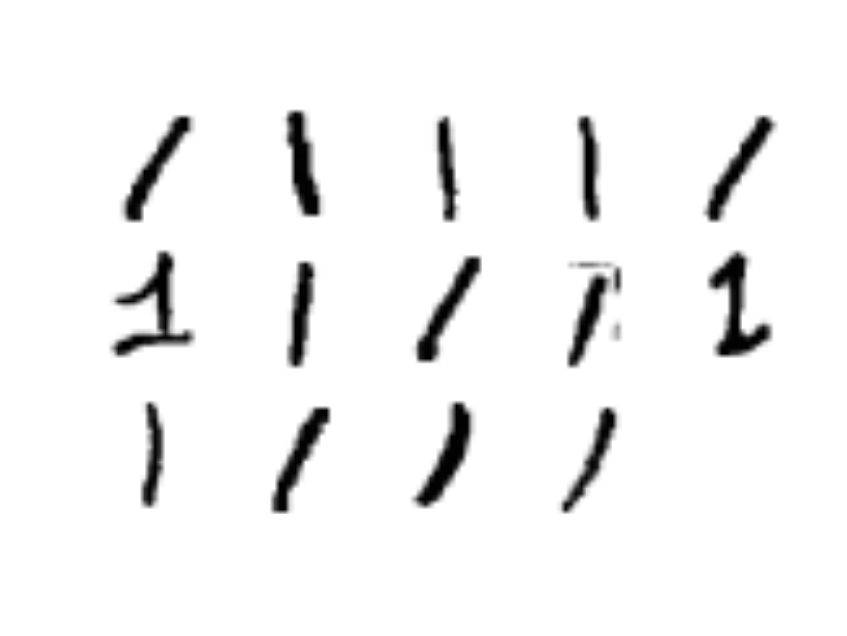 1 1 1 1 1
1 1 1 1 1
1 1 1 1